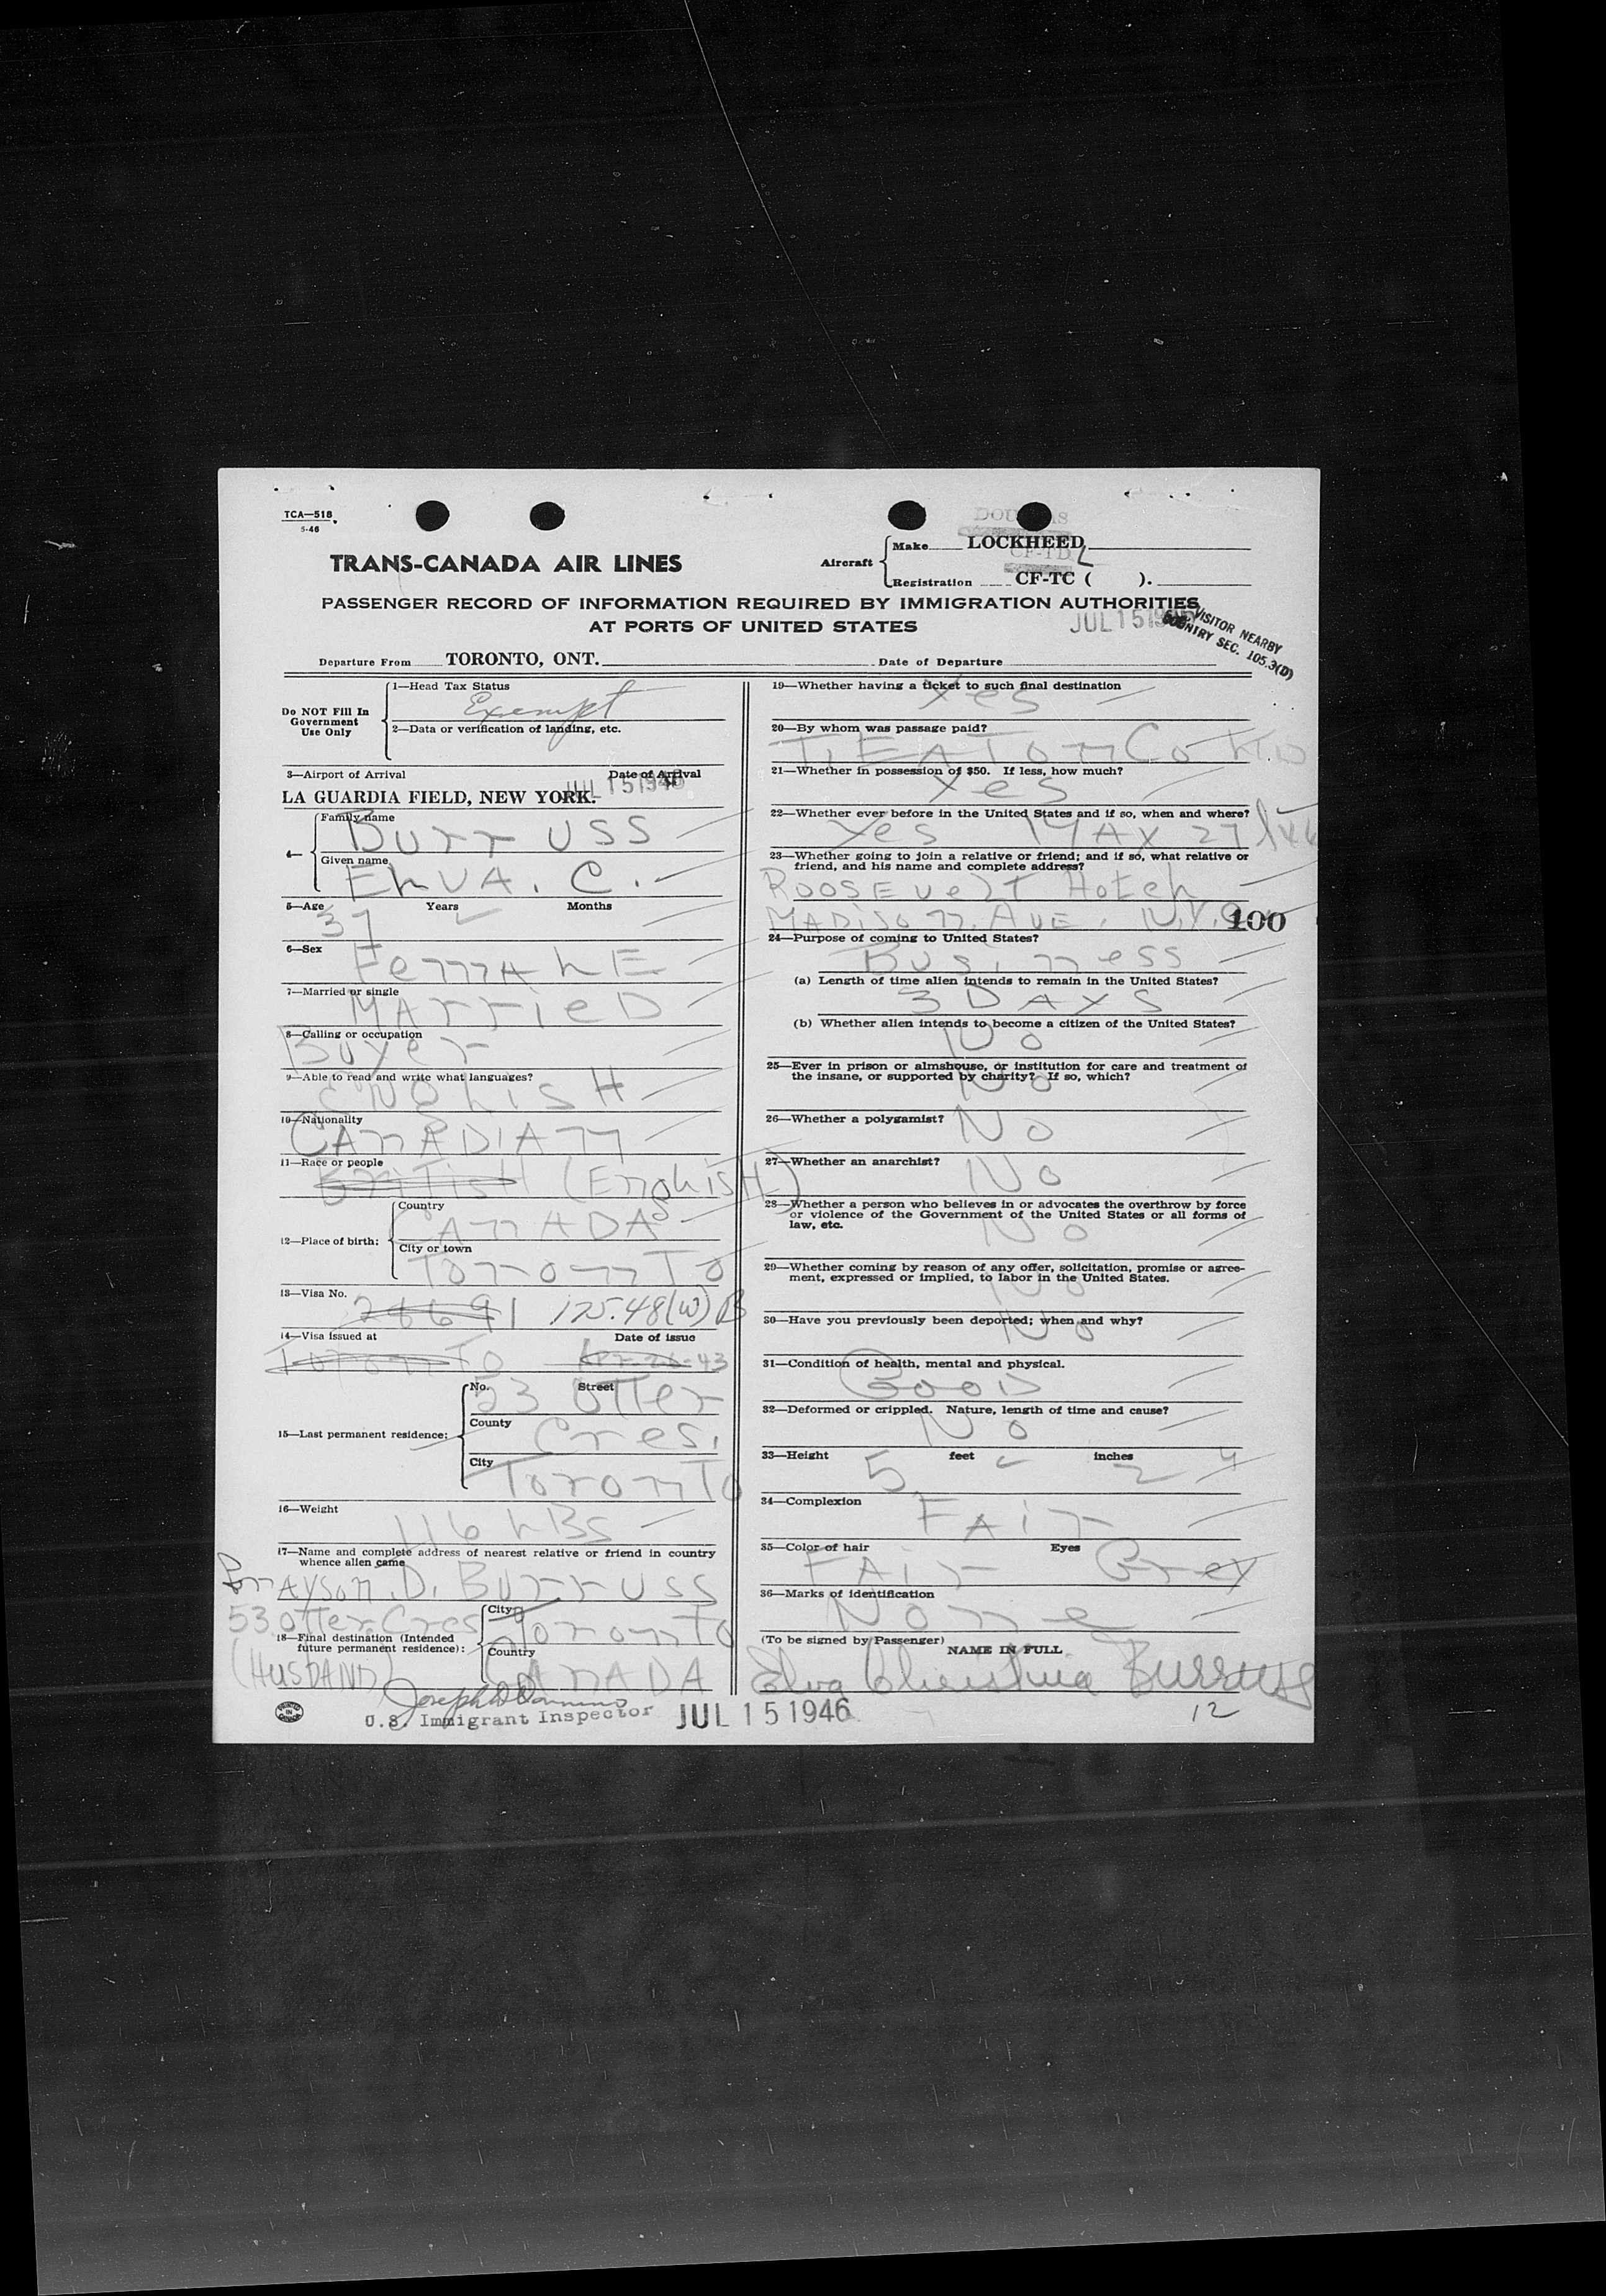 TCA—518
5-46
DOUGLAS
TRANS-CANADA AIR LINES
Aircraft
Make LOCKHEED
CF-TDL
Registration CF-TC ( ).
PASSENGER RECORD OF INFORMATION REQUIRED BY IMMIGRATION AUTHORITIES
AT PORTS OF UNITED STATES
JUL 15 1946
VISITOR NEARBY
COUNTRY SEC. 105.3(D)
Departure From TORONTO, ONT. Date of Departure
Do NOT Fill In
Government
Use Only
1—Head Tax Status
Exempt
2—Data or verification of landing, etc.
3—Airport of Arrival Date of Arrival
LA GUARDIA FIELD, NEW YORK. JUL 15 1946
4—
Family name
Burruss
Given name
ELVA. C.
5—Age Years Months
37
6—Sex
FemmALE
7—Married or single
MArrieD
8—Calling or occupation
Buyer
9—Able to read and write what languages?
ENgLisH
10—Nationality
CAnADIAn
11—Race or people
BriTisH (EngLisH)
12—Place of birth:
Country
CAnADA
City or town
ToronTo
13—Visa No.
28691 175.48(W)B
14—Visa issued at Date of issue
ToronTo Apr-26-43
15—Last permanent residence:
No. Street
53 OTTer
County
Cres.
City
ToronTo
16—Weight
116 LBs
17—Name and complete address of nearest relative or friend in country
whence alien came
GrAyson. D. Burruss
53 OTTer Cres
City
ToronTo
18—Final destination (Intended
future permanent residence):
Country
CAnADA
(HusBAnD)
U.S. Immigrant Inspector JUL 15 1946
19—Whether having a ticket to such final destination
Yes
20—By whom was passage paid?
T. EATon Co LTD
21—Whether in possession of $50. If less, how much?
Yes
22—Whether ever before in the United States and if so, when and where?
Yes MAY 27 1946
23—Whether going to join a relative or friend; and if so, what relative or
friend, and his name and complete address?
ROOSEveLT HoTeL
MADison. AvE. N.Y.C. 100
24—Purpose of coming to United States?
Business
(a) Length of time alien intends to remain in the United States?
3 DAYS
(b) Whether alien intends to become a citizen of the United States?
No
25—Ever in prison or almshouse, or institution for care and treatment of
the insane, or supported by charity? If so, which?
No
26—Whether a polygamist?
No
27—Whether an anarchist?
No
28—Whether a person who believes in or advocates the overthrow by force
or violence of the Government of the United States or all forms of
law, etc.
No
29—Whether coming by reason of any offer, solicitation, promise or agree-
ment, expressed or implied, to labor in the United States.
No
30—Have you previously been deported; when and why?
No
31—Condition of health, mental and physical.
GooD
32—Deformed or crippled. Nature, length of time and cause?
No
33—Height feet inches
5 2
34—Complexion
FAir
35—Color of hair Eyes
FAir Grey
36—Marks of identification
None
(To be signed by Passenger)
NAME IN FULL
Elva Christina Burruss
12